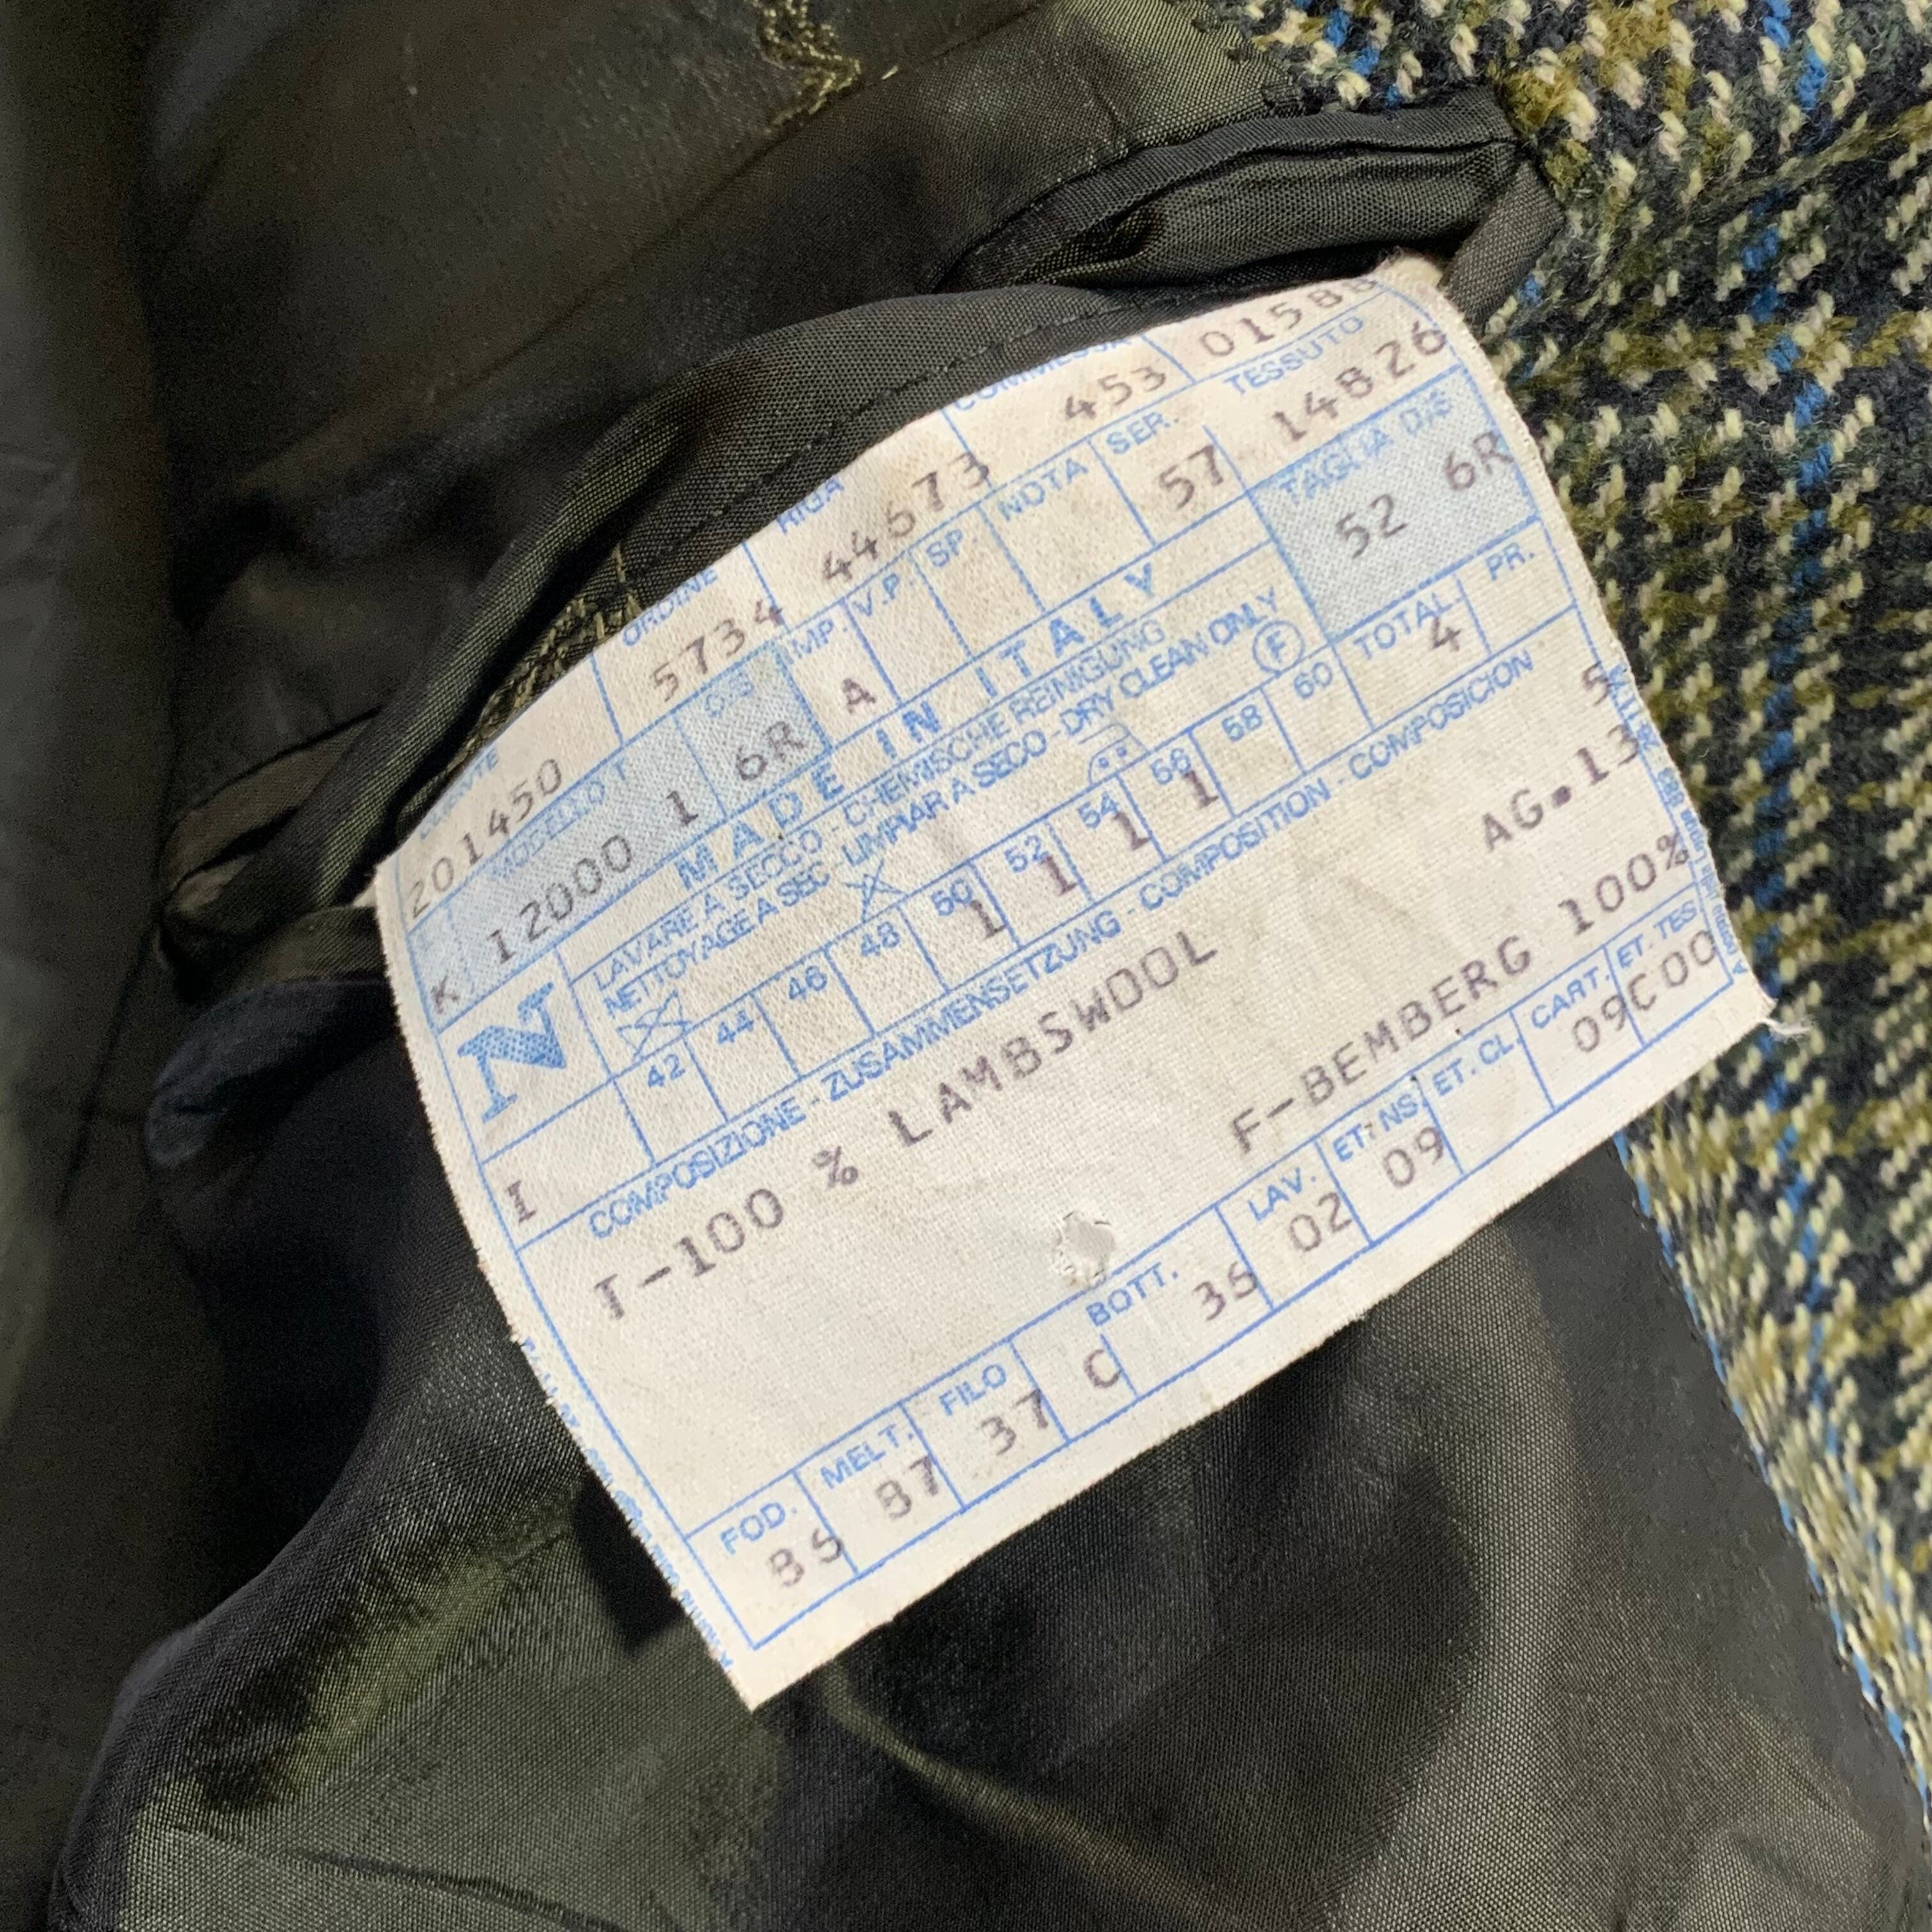 01588
453
TESSUTO
RIGA
44673
SER.
14826
ORDINE
5734
V.P. SP. NOTA
57
TAGLIA DIS
201450
MODELLO T DIS
IMP.
A
52 6R
K 12000 1 6R
MADE IN ITALY
TOTAL PR.
4
LAVARE A SECCO - CHEMISCHE REINIGUNG
NETTOYAGE A SEC - LIMPIAR A SECO - DRY CLEAN ONLY
F
N
42 44 46 48 50 52 54 56 58 60
1 1 1 1
I
COMPOSIZIONE - ZUSAMMENSETZUNG - COMPOSITION - COMPOSICION
5
T-100 % LAMBSWOOL
AG.13
F-BEMBERG 100%
FOD. MELT. FILO BOTT. LAV. ET. NS. ET. CL. CART. ET. TES
86 87 37 C 36 02 09 09C00